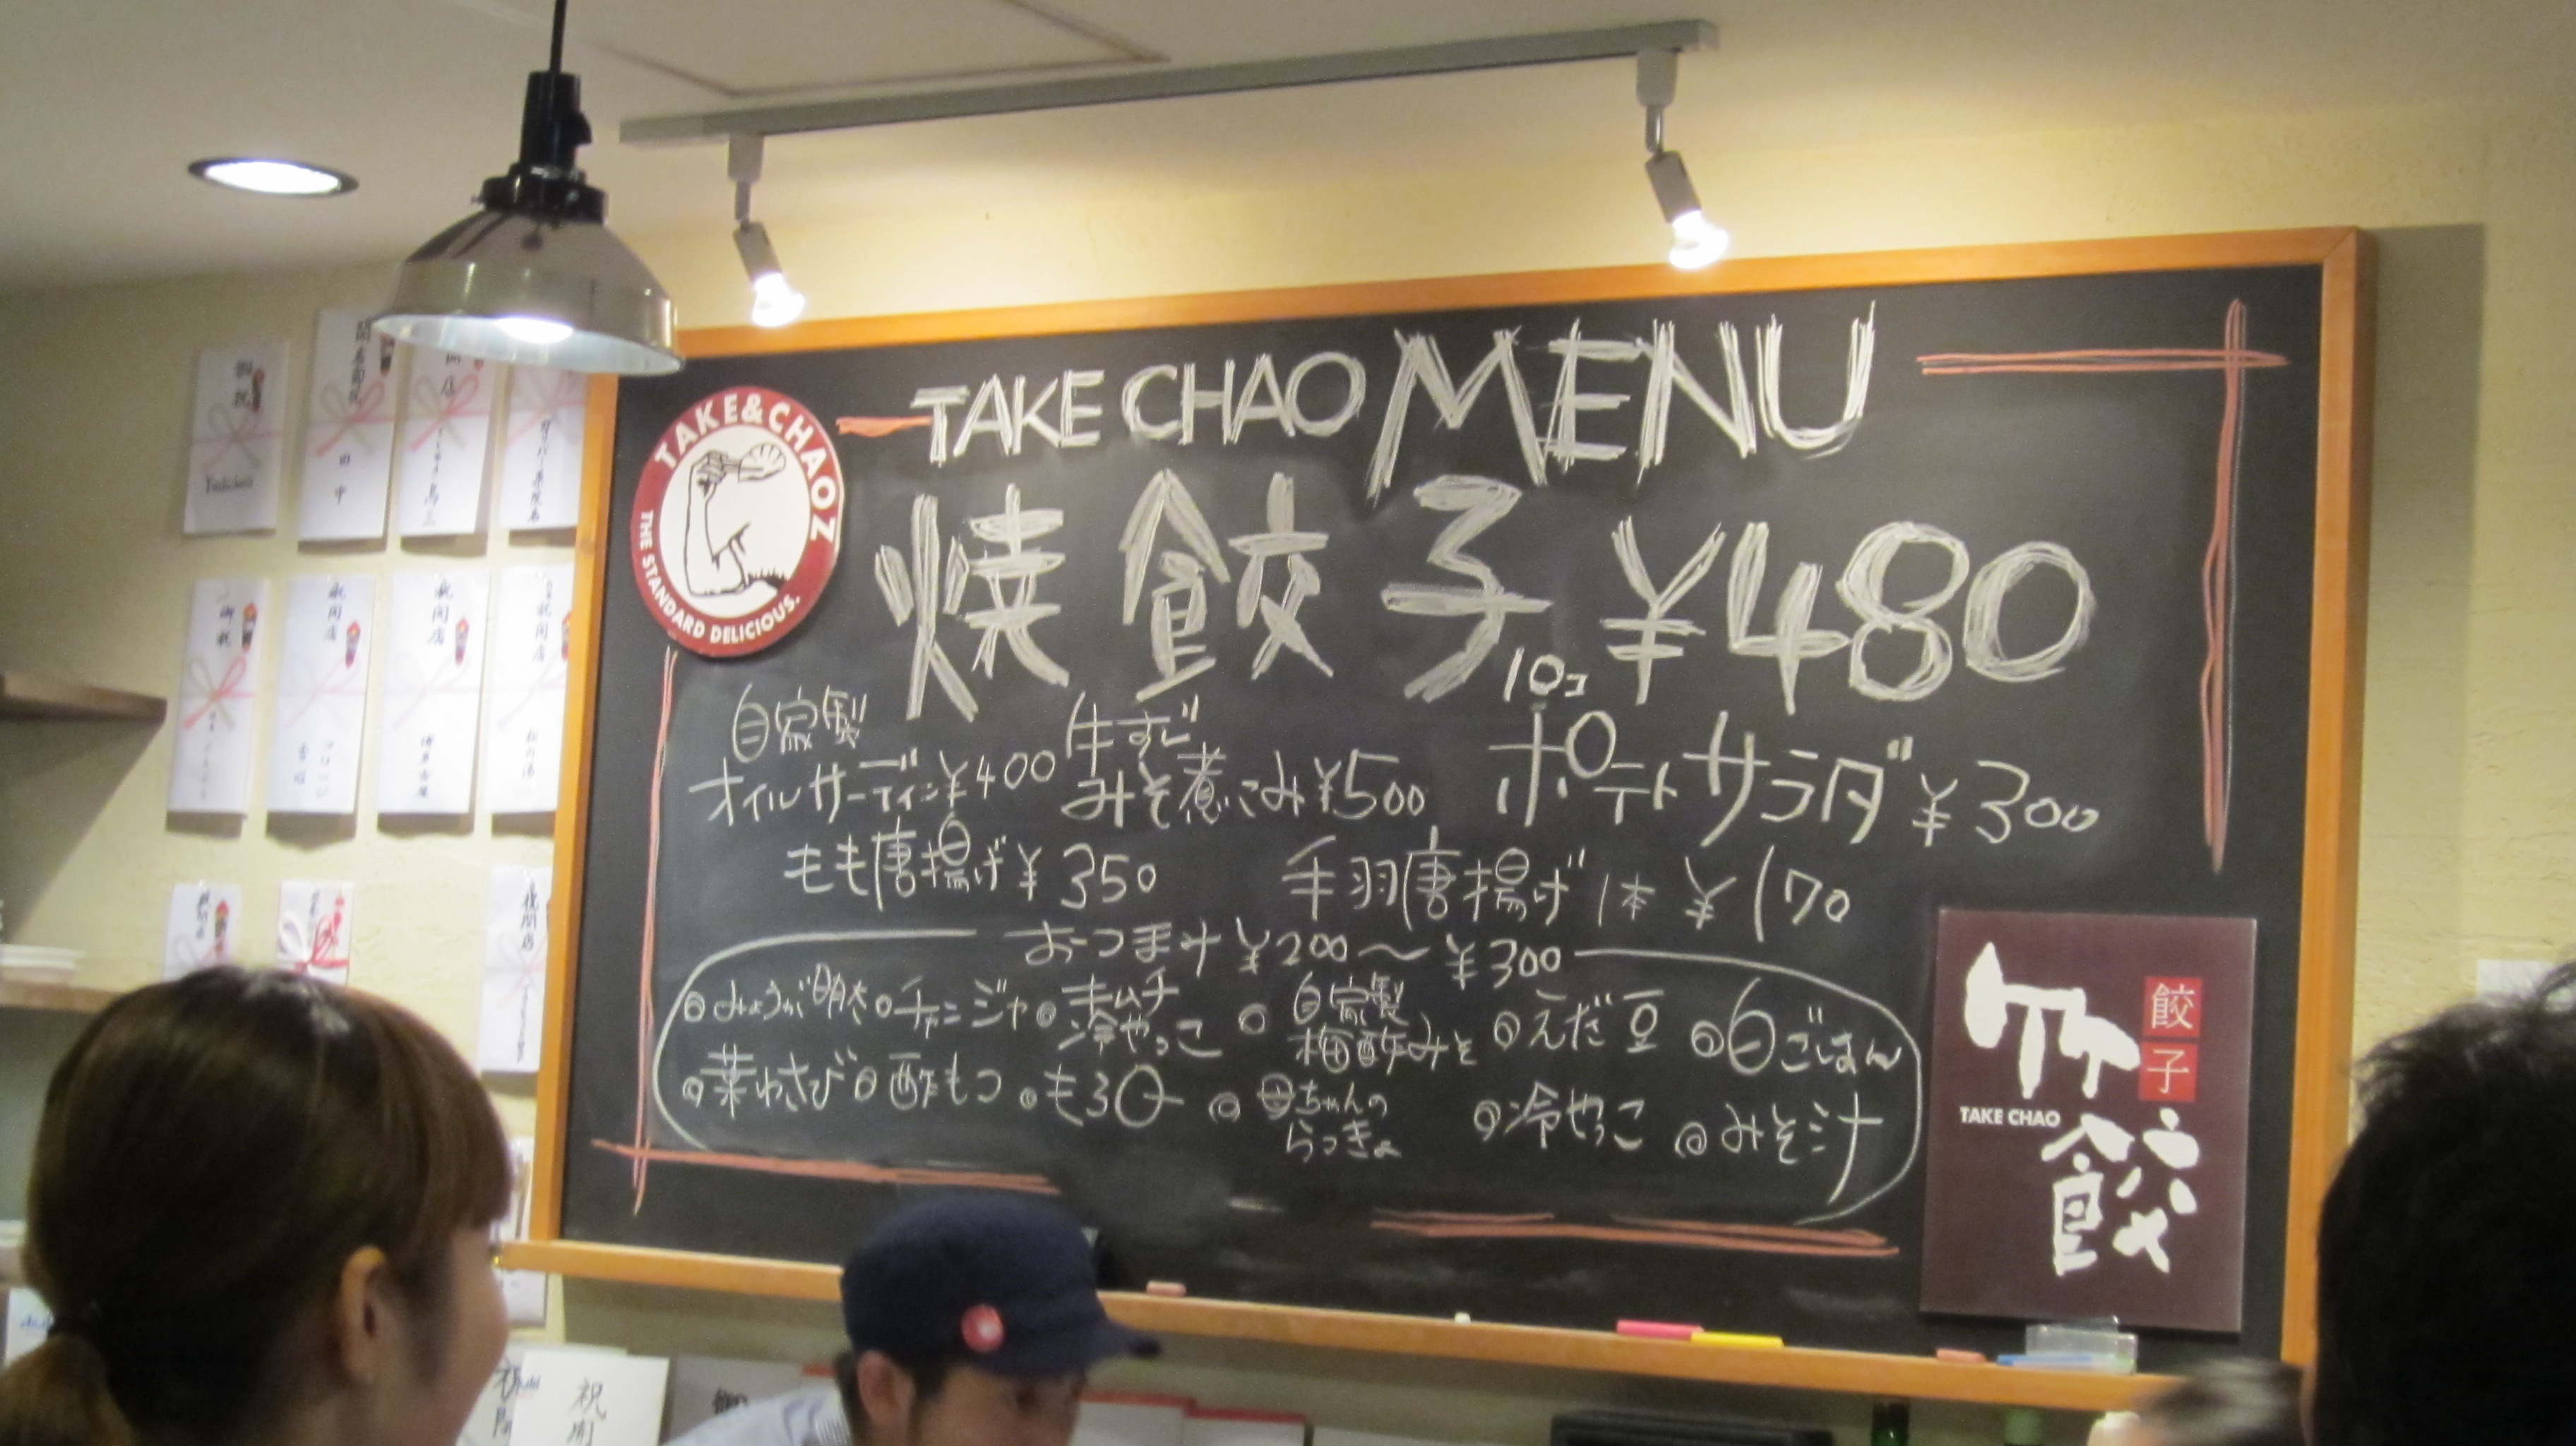 TAKE CHAO MENU
TAKE&CHAOZ
THE STANDARD DELICIOUS.
焼餃子 10コ ¥480
自家製
オイルサーディン ¥400
牛すじ
みそ煮こみ ¥500
ポテトサラダ ¥300
もも唐揚げ ¥350
手羽唐揚げ 1本 ¥170
おつまみ ¥200〜¥300
◎みょうが明太
◎チャンジャ
◎キムチ
冷やっこ
◎自家製
梅酢みそ
◎えだ豆
◎白ごはん
◎葉わさび
◎酢もつ
◎もろQ
◎母ちゃんの
らっきょ
◎冷やっこ
◎みそ汁
餃子
竹餃
TAKE CHAO
御祝
田中
御祝
祝開店
祝開店
祝開店
祝開店
祝開